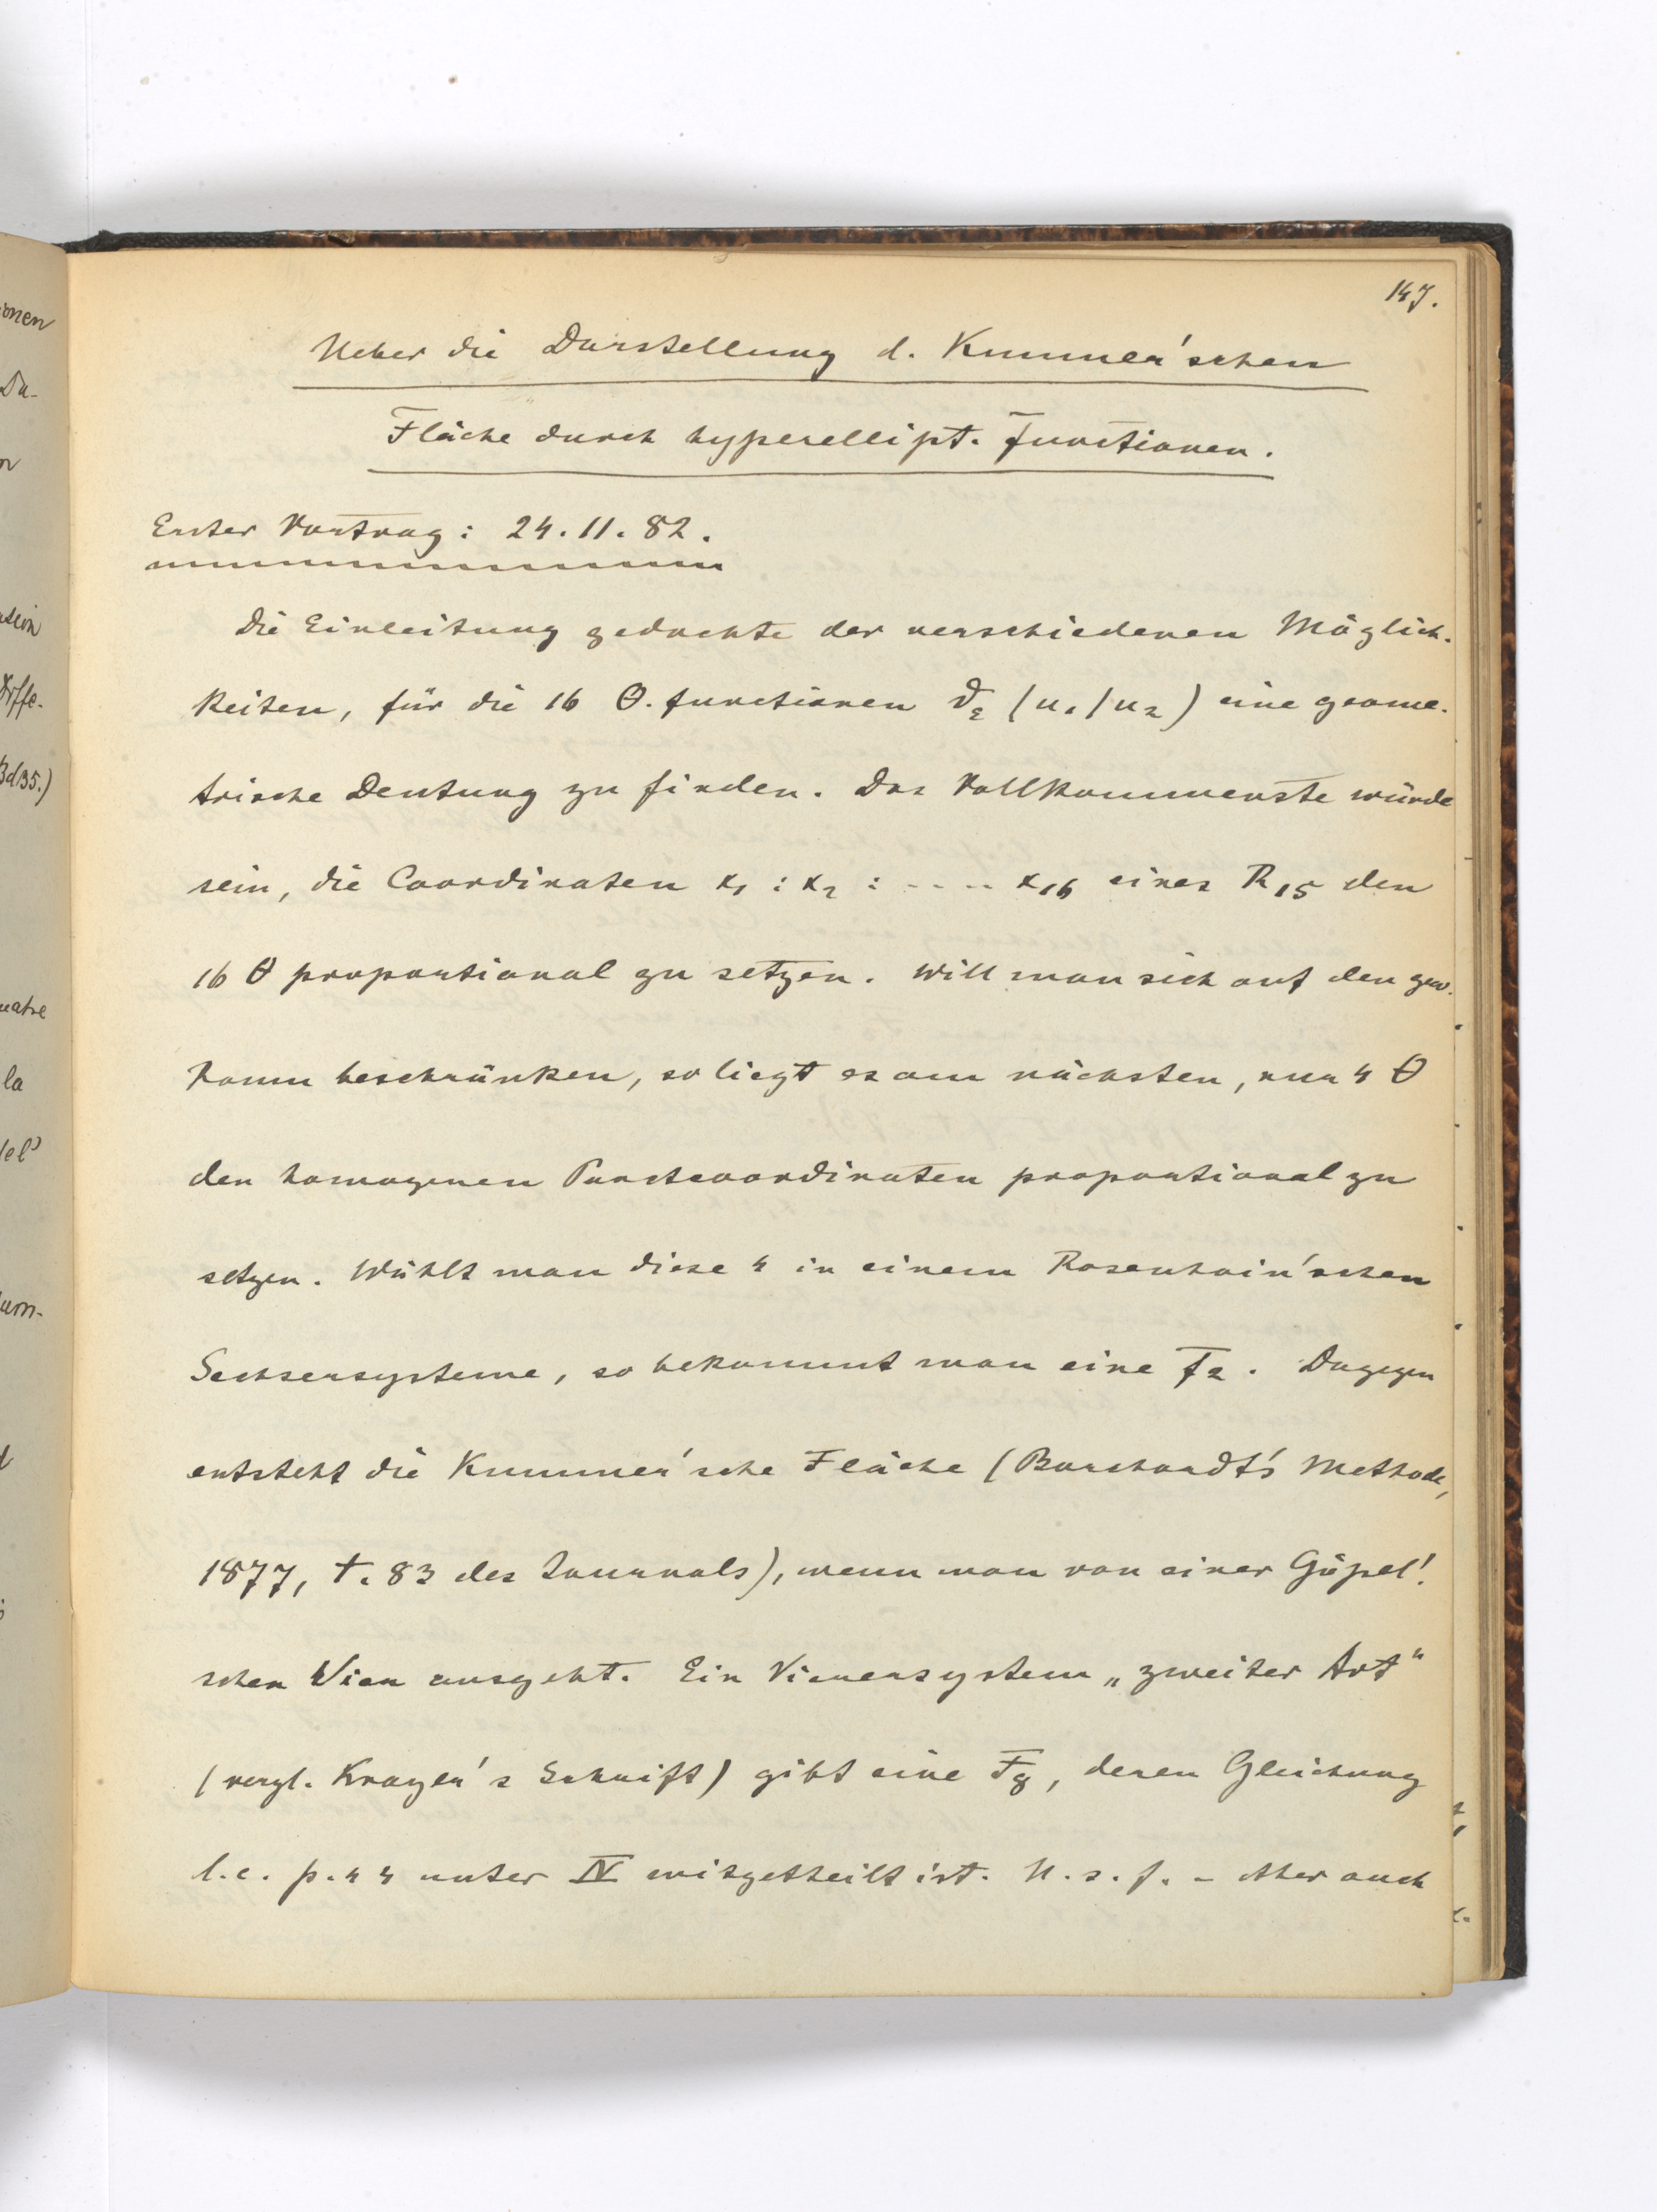 147.
Ueber die Darstellung d. Kummer'schen
Fläche durch hyperellipt. Functionen.
Erster Vortrag: 24.11.82.
Die Einleitung gedachte der verschiedenen Möglich-
keiten, für die 16 Θ-functionen ϑ (u₁/u₂) eine geome-
trische Deutung zu finden. Das Vollkommenste würde
sein, die Coordinaten x₁ : x₂ : ..... x₁₆ eines R₁₅ den
16 Θ proportional zu setzen. Will man sich auf den gew.
Raum beschränken, so liegt es am nächsten, nur 4 Θ
den homogenen Punctcoordinaten proportional zu
setzen. Wählt man diese 4 in einem Rosenhain'schen
Sechsersysteme, so bekommt man eine F₂. Dagegen
entsteht die Kummer'sche Fläche (Borchardt's Methode,
1877, t. 83 des Journals), wenn man von einer Göpel'-
schen Vier ausgeht. Ein Vierersystem „zweiter Art"
(vergl. Krazer's Schrift) gibt eine F₈, deren Gleichung
l.c. p. 44 unter IV mitgetheilt ist. U.s.f. - Aber auch
onen
Du-
n
Diffe-
Bd 35.)
la